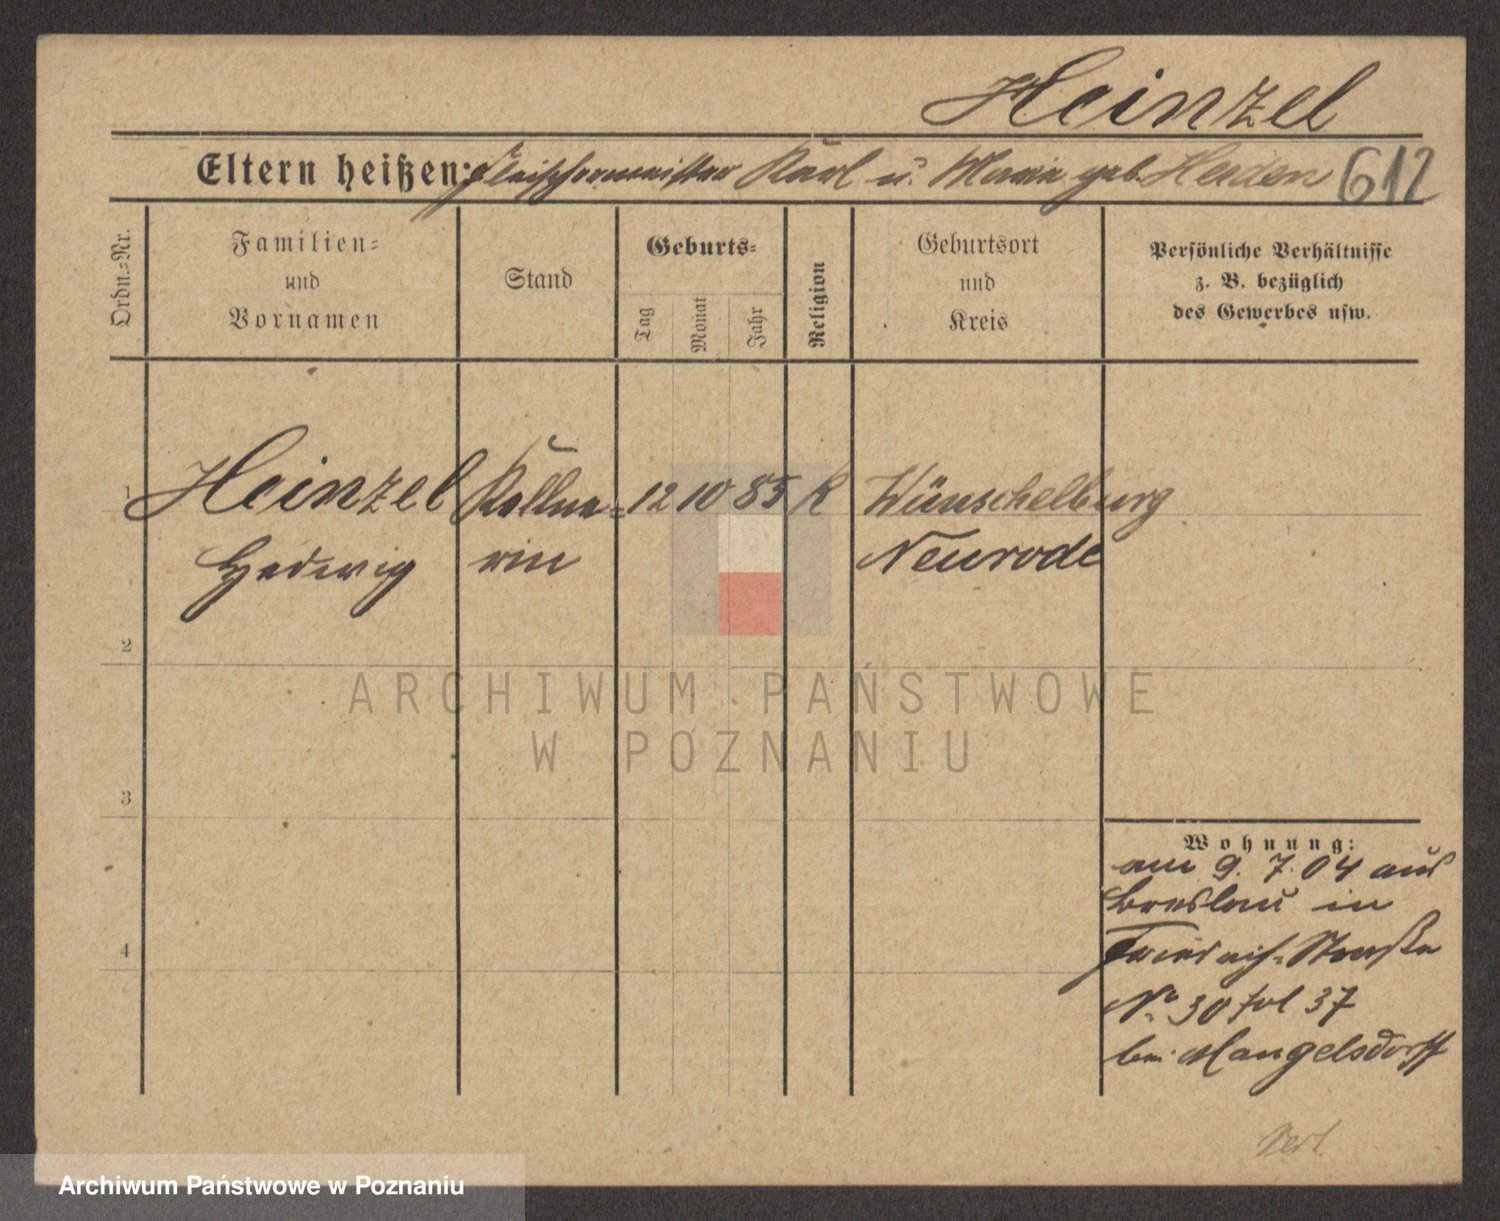 Heinzel
Eltern heißen: Fleischermeister Karl u. Marie geb. Heiden 612
Ordn.=Nr.
Familien=
und
Vornamen
Stand
Geburts=
Tag
Monat
Jahr
Religion
Geburtsort
und
Kreis
Persönliche Verhältnisse
z. B. bezüglich
des Gewerbes usw.
1 Heinzel Kellne= 12 10 85 K Wünschelburg
Hedwig rin Neurode
2
3
4
Wohnung:
am 9. 7. 04 aus
Breslau in
Friedrich=Straße
No 30 fol 37
bei Mangelsdorff
ARCHIWUM PAŃSTWOWE
W POZNANIU
Archiwum Państwowe w Poznaniu